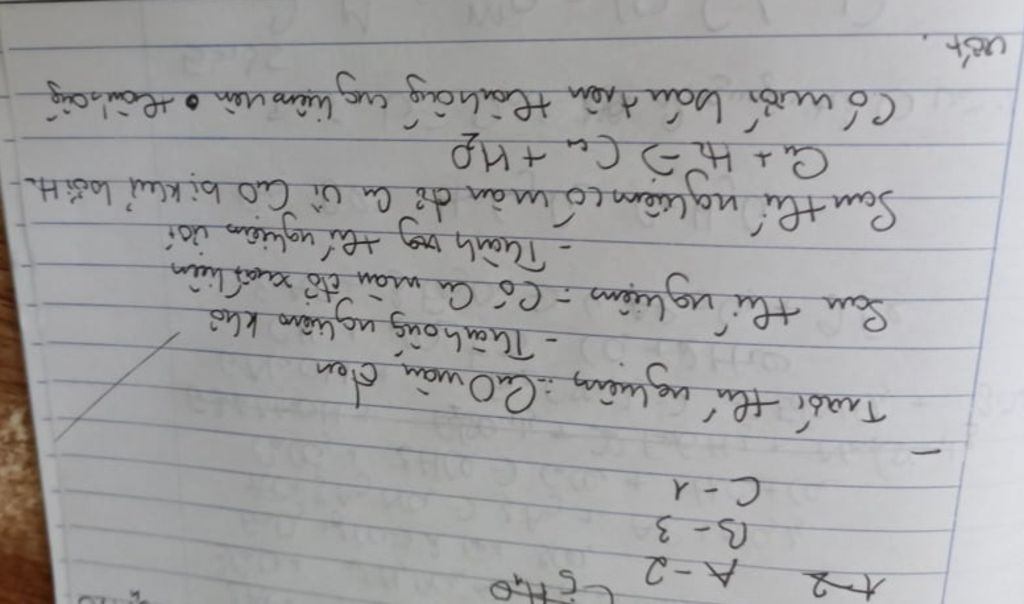 1-2 A-2
B-3
C-1
Trước thí nghiệm: CuO màu đen
- Thành ống nghiệm khô
Sau thí nghiệm: - Có Cu màu đỏ xuất hiện
- Thành ống thí nghiệm ướt
Sau thí nghiệm có màu đỏ Cu vì CuO bị khử bởi H2
Cu + H2 → Cu + H2O
Có nước bám trên thành ống nghiệm nên thành ống
ướt.